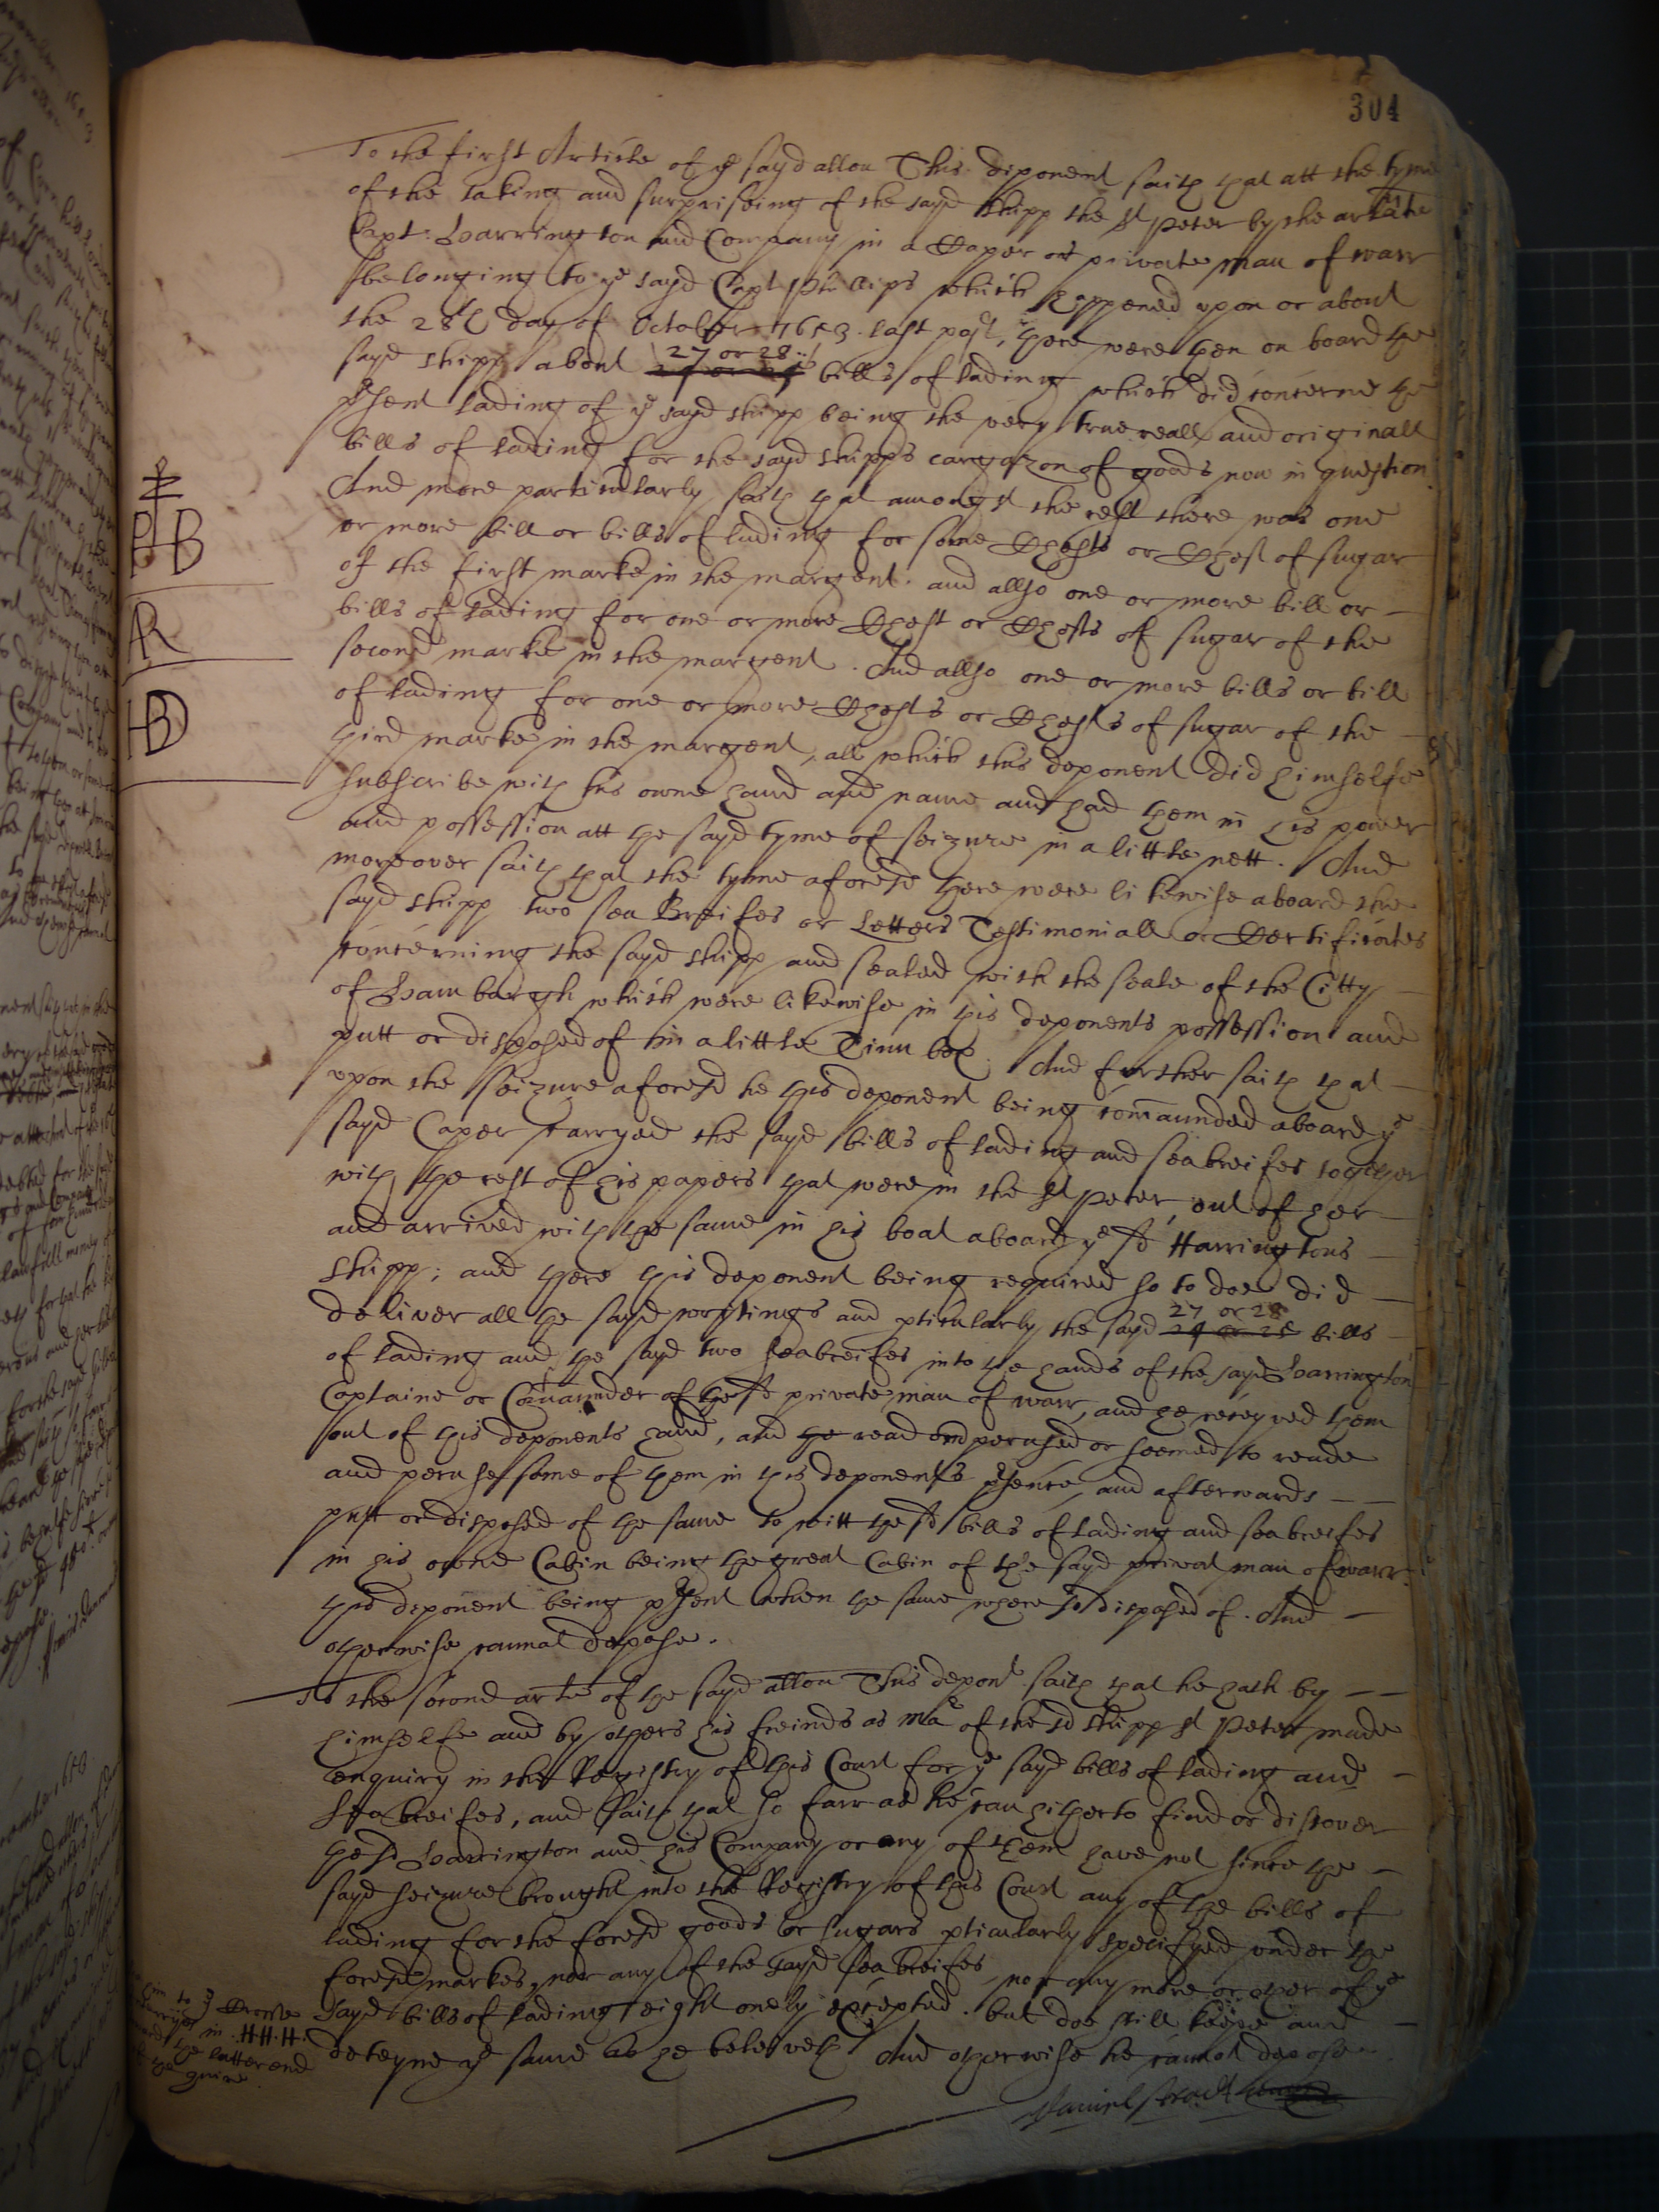 304
To the first Article of ye sayd allon This deponent saith that att the tyme
of the taking and surpriseing of the sayd shipp the St Peter by the arlate
Capt: Harrington and Company in a Caper or private man of warr
belonging to ye sayd Capt Phillips which happened upon or about
the 28th day of October 1653 last past, there were then on board the
sayd shipp about 27 or 28 bills of lading which did concerne the
pnt lading of ye sayd shipp being the very true reall and originall
bills of lading for the sayd shipps cargazon of goods now in question
And more particularly saith that amongst the rest there was one
or more bill or bills of lading for some Chests or Chest of sugar
of the first marke in the margent. and allso one or more bill or
bills of lading for one or more Chest or Chests of sugar of the
second marke in the margent. And allso one or more bills or bill
of lading for one or more Chests or Chests of sugar of the
third marke in the margent, all which this deponent did himselfe
HB
AR
HBD
subscribe with his owne hand and name and had them in his power
and possession att the sayd tyme of seizure in a little nett. And
moreover saith that the tyme aforesd there were likewise aboard the
sayd shipp two sea Breifes or Letters Testimoniall or Certificates
concerning the sayd shipp and sealed with the seale of the Citty
of Hamburgh which were likewise in this deponents possession and
putt or disposed of in a little Tinn box. And further saith that
upon the seizure aforesd he this deponent being comaunded aboard ye
sayd Caper carryed the sayd bills of lading and seabreifes together
with the rest of his papers that were in the St Peter, out of her
and arrived with the same in his boat aboard ye sd Harringtons
shipp; and there this deponent being required so to doe did
deliver all the sayd wrytings and pticularly the sayd 27 or 28 bills
of lading and the sayd two seabreifes into the hands of the sayd Harrington
Captaine or Comaunder of the sd private man of warr, and he receyved them
out of this deponents hand, and he read and perused or seemed to reade
and peruse some of them in this deponents psence, and afterwards
putt or disposed of the same to witt the sd bills of lading and seabreifes
in his owne Cabin being the great Cabin of the sayd privat man of warr
this deponent being psent when the same where so disposed of. And
otherwise cannot depose.
To the second arle of the sayd allon This depont saith that he hath by
himselfe and by others his freinds as Mar of the sd shipp St Peter made
enquiry in the Registry of this Court for ye sayd bills of lading and
seabreifes, and saith that so farr as he can hitherto find or discover
the sd Harrington and his Company or any of them have not since the
sayd seizure brought into the Registry of this Court any of the bills of
lading for the foresd goods or sugars pticularly specifyed under the
foresd markes, nor any of the sayd sea breifes nor any more or other of ye
sayd bills of lading eight onely excepted. but doe still keepe and
deteyne ye same as he beleiveth And otherwise he cannot depose.
in .H.H.H.
the latter end
quire